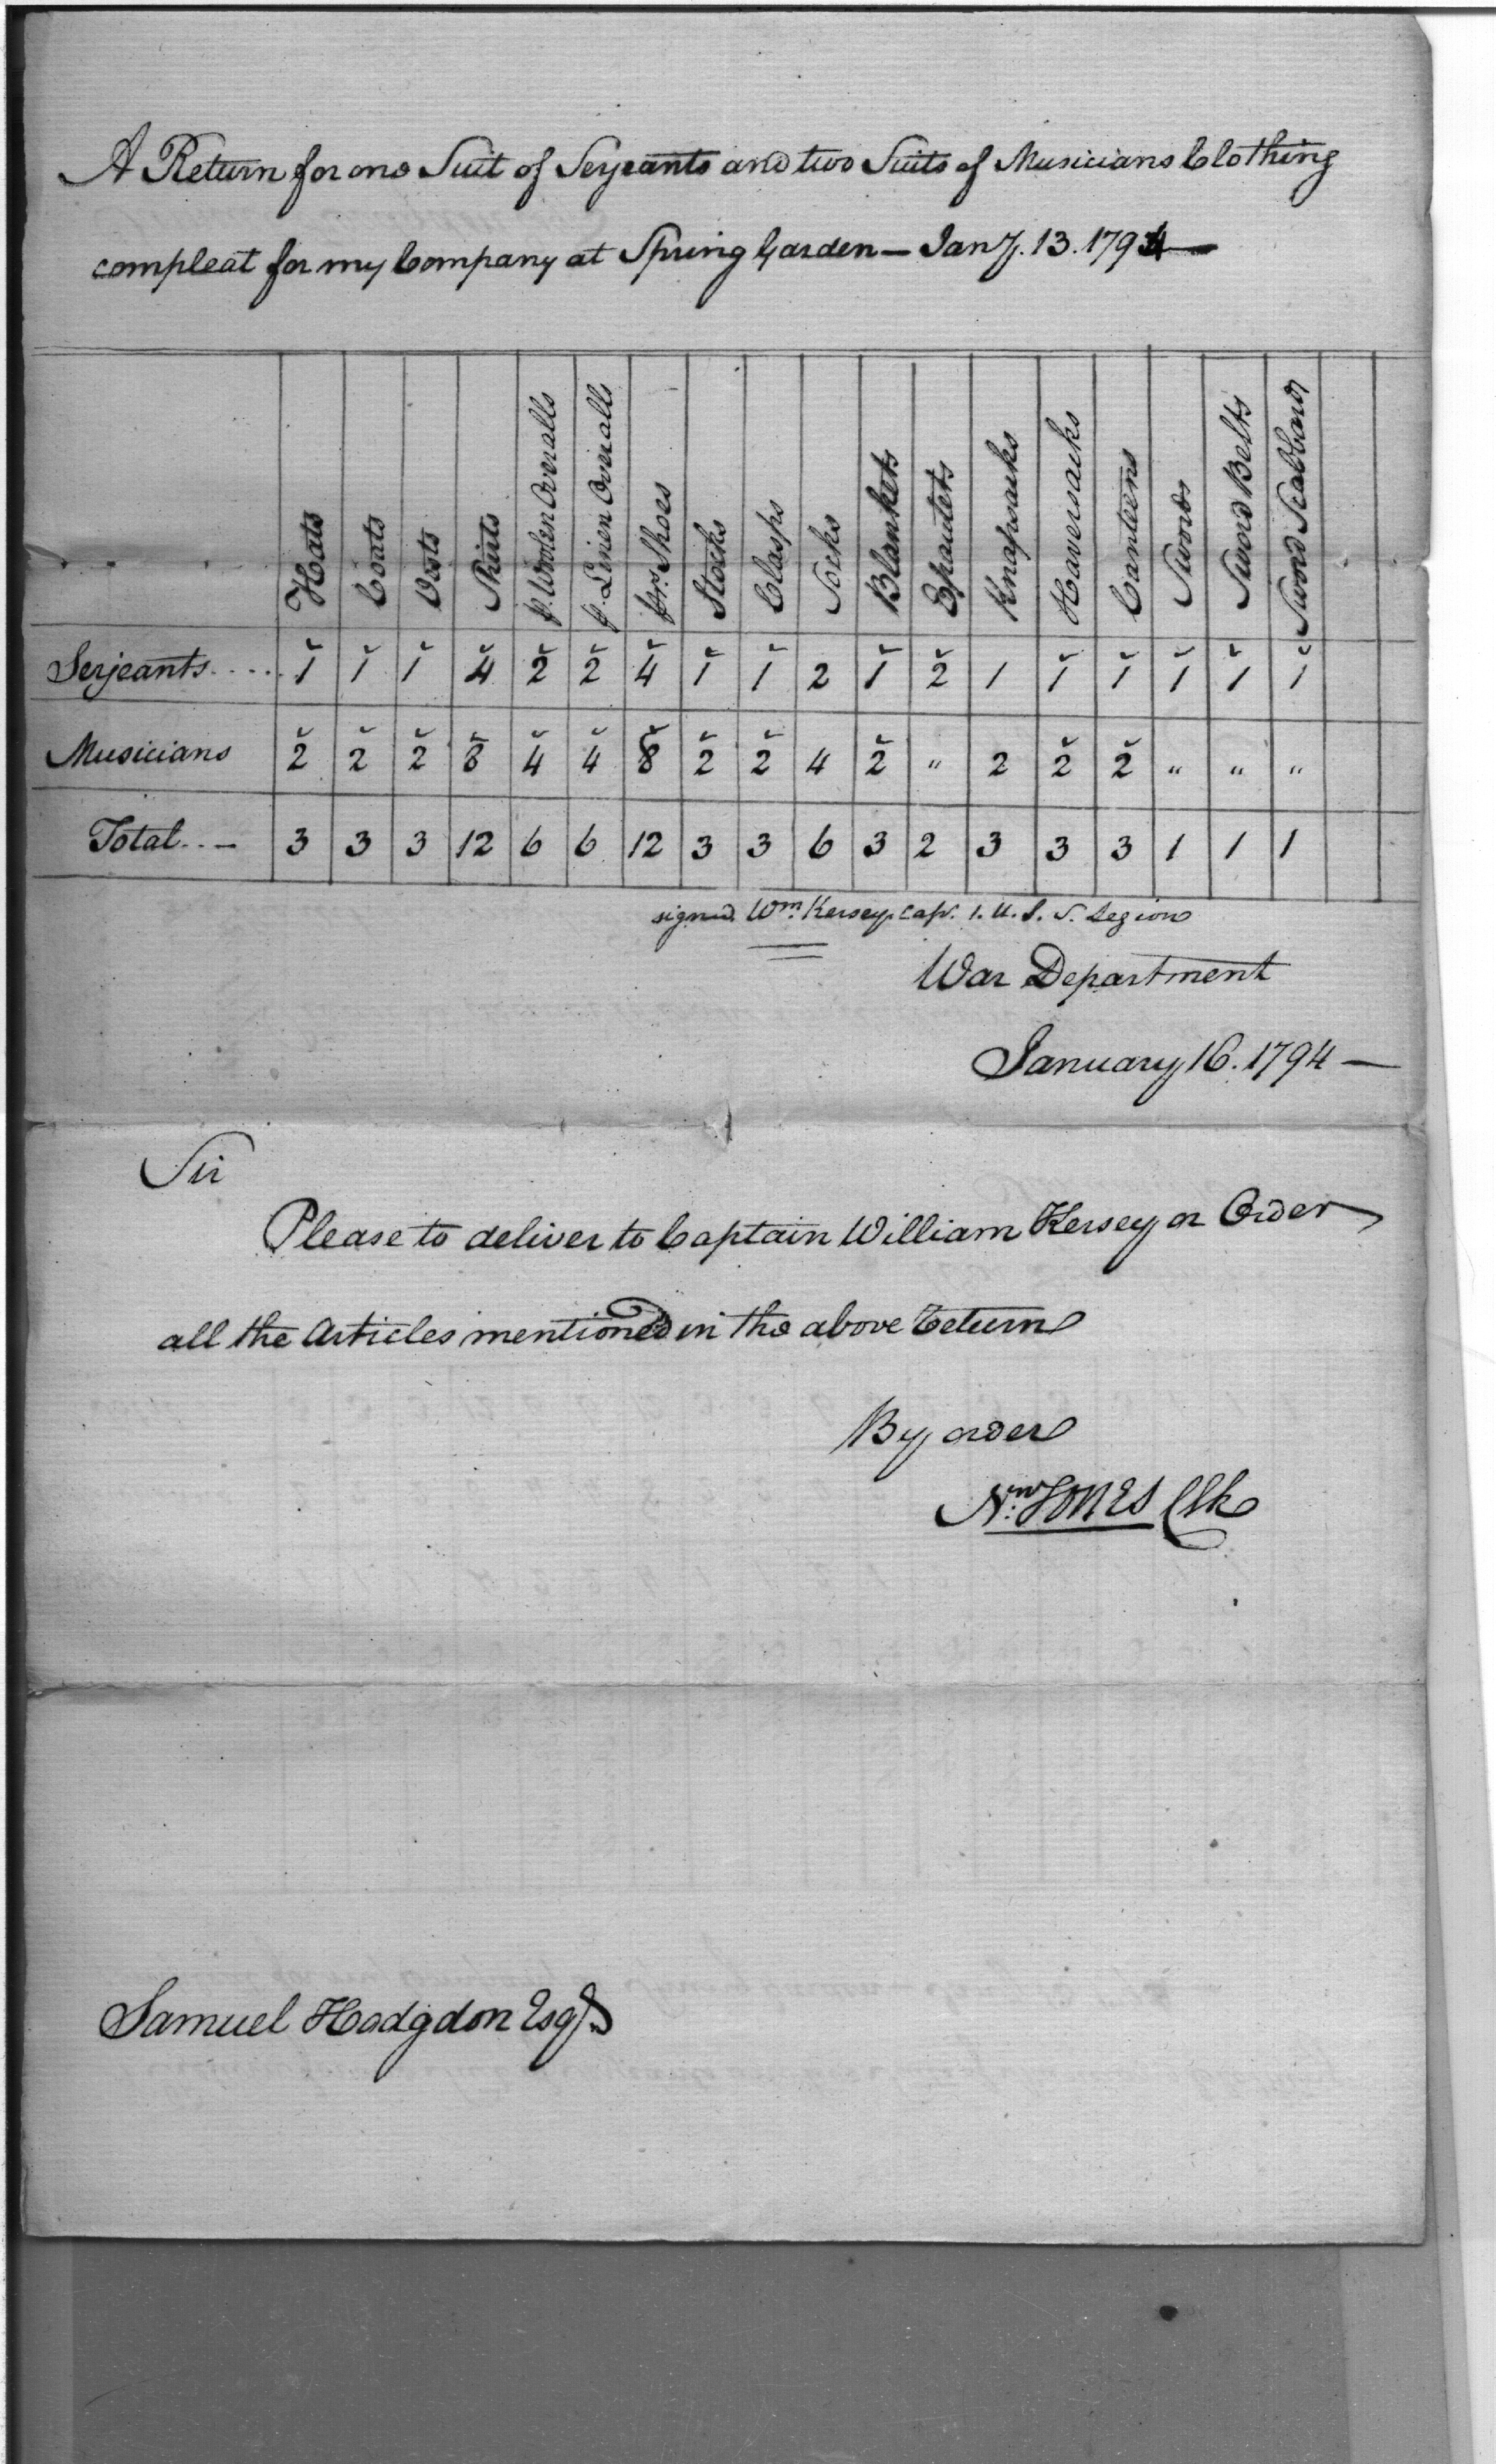 A Return for one Suit of Serjeants and two Suits of Musicians Clothing
compleat for my Company at Spring Garden — Jany. 13. 1794 —
Hats Coats Vests Shirts p. Woolen Overalls p. Linien Overalls pr. Shoes Stocks Clasps Socks Blankets Epautets Knapsacks Haversacks Canteens Swords Sword Belts Sword Scabbards
Serjeants.... 1 1 1 4 2 2 4 1 1 2 1 2 1 1 1 1 1 1
Musicians 2 2 2 8 4 4 8 2 2 4 2 " 2 2 2 " " "
Total..- 3 3 3 12 6 6 12 3 3 6 3 2 3 3 3 1 1 1
signed. Wm. Kersey. Cap. 1. U. S. S. Legion
War Department
January 16. 1794 —
Sir
Please to deliver to Captain William Kersey or Order
all the Articles mentioned in the above Return
By order
Jones Clk
Samuel Hodgdon Esqr.